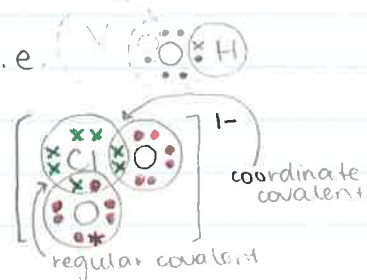 .e.
O
H
1-
Cl
O
O
coordinate
covalent
regular covalent